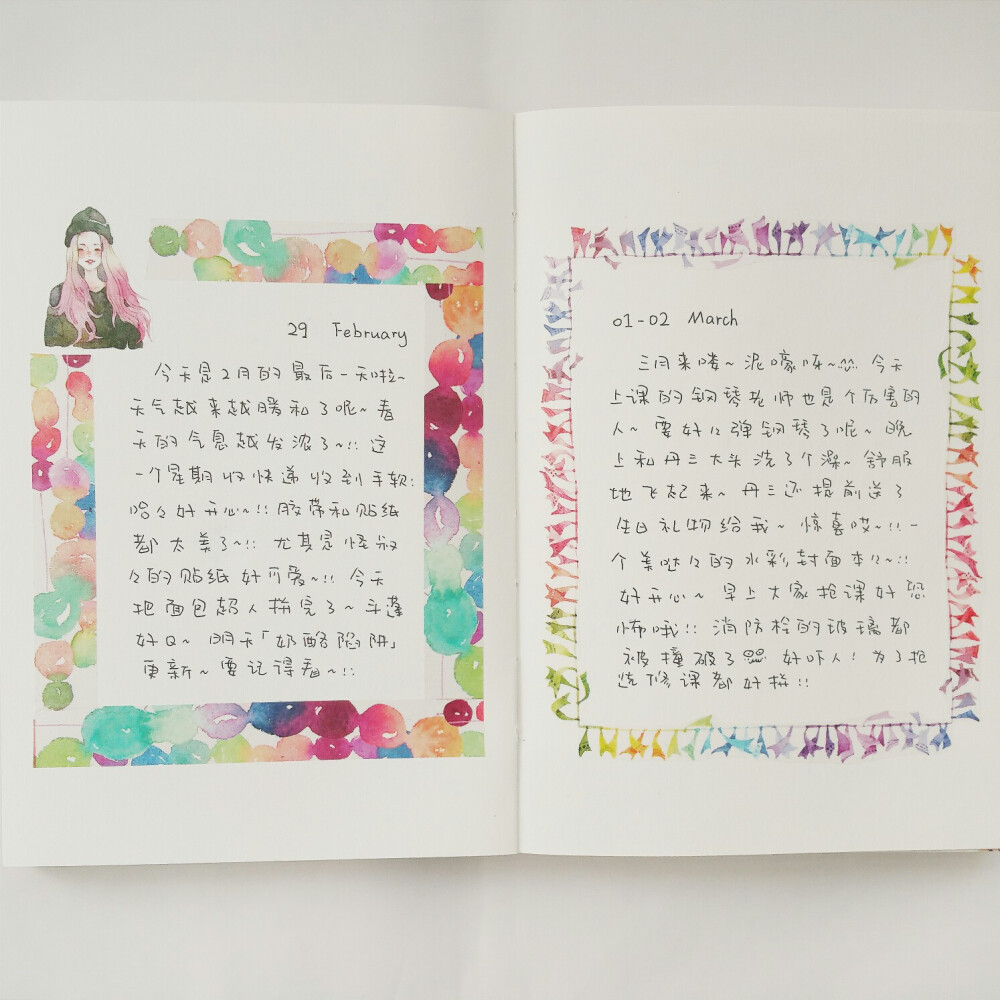 29 February
今天是2月的最后一天啦~
天气越来越暖和了呢~春
天的气息越发浓了~!! 这
一个星期收快递收到手软!
哈々好开心~!! 胶带和贴纸
都太美了~!! 尤其是怪叔
々的贴纸好可爱~!! 今天
把面包超人拼完了~斗篷
好Q~ 明天「奶酪陷阱」
更新~要记得看~!!
01-02 March
三月来喽~泥嚎呀~ 今天
上课的钢琴老师也是个厉害的
人~要好々弹钢琴了呢~晚
上和丹三大头洗了个澡~舒服
地飞起来~丹三还提前送了
生日礼物给我~惊喜哎~!! 一
个美哒々的水彩封面本々~!!
好开心~ 早上大家抢课好恐
怖哦!! 消防栓的玻璃都
被撞破了 好吓人! 为了抢
选修课都好拼!!